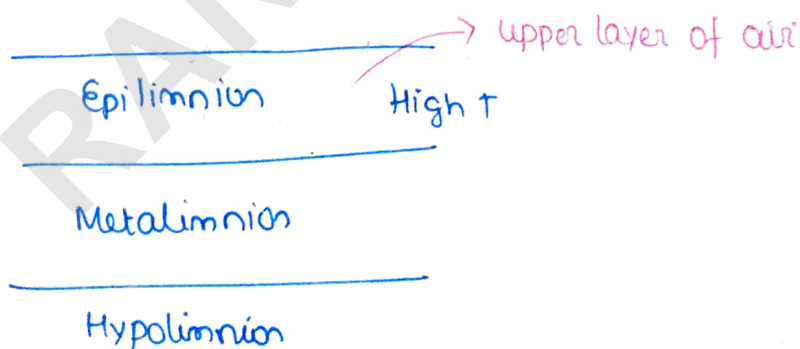 upper layer of air
Epilimnion High ↑
Metalimnion
Hypolimnion